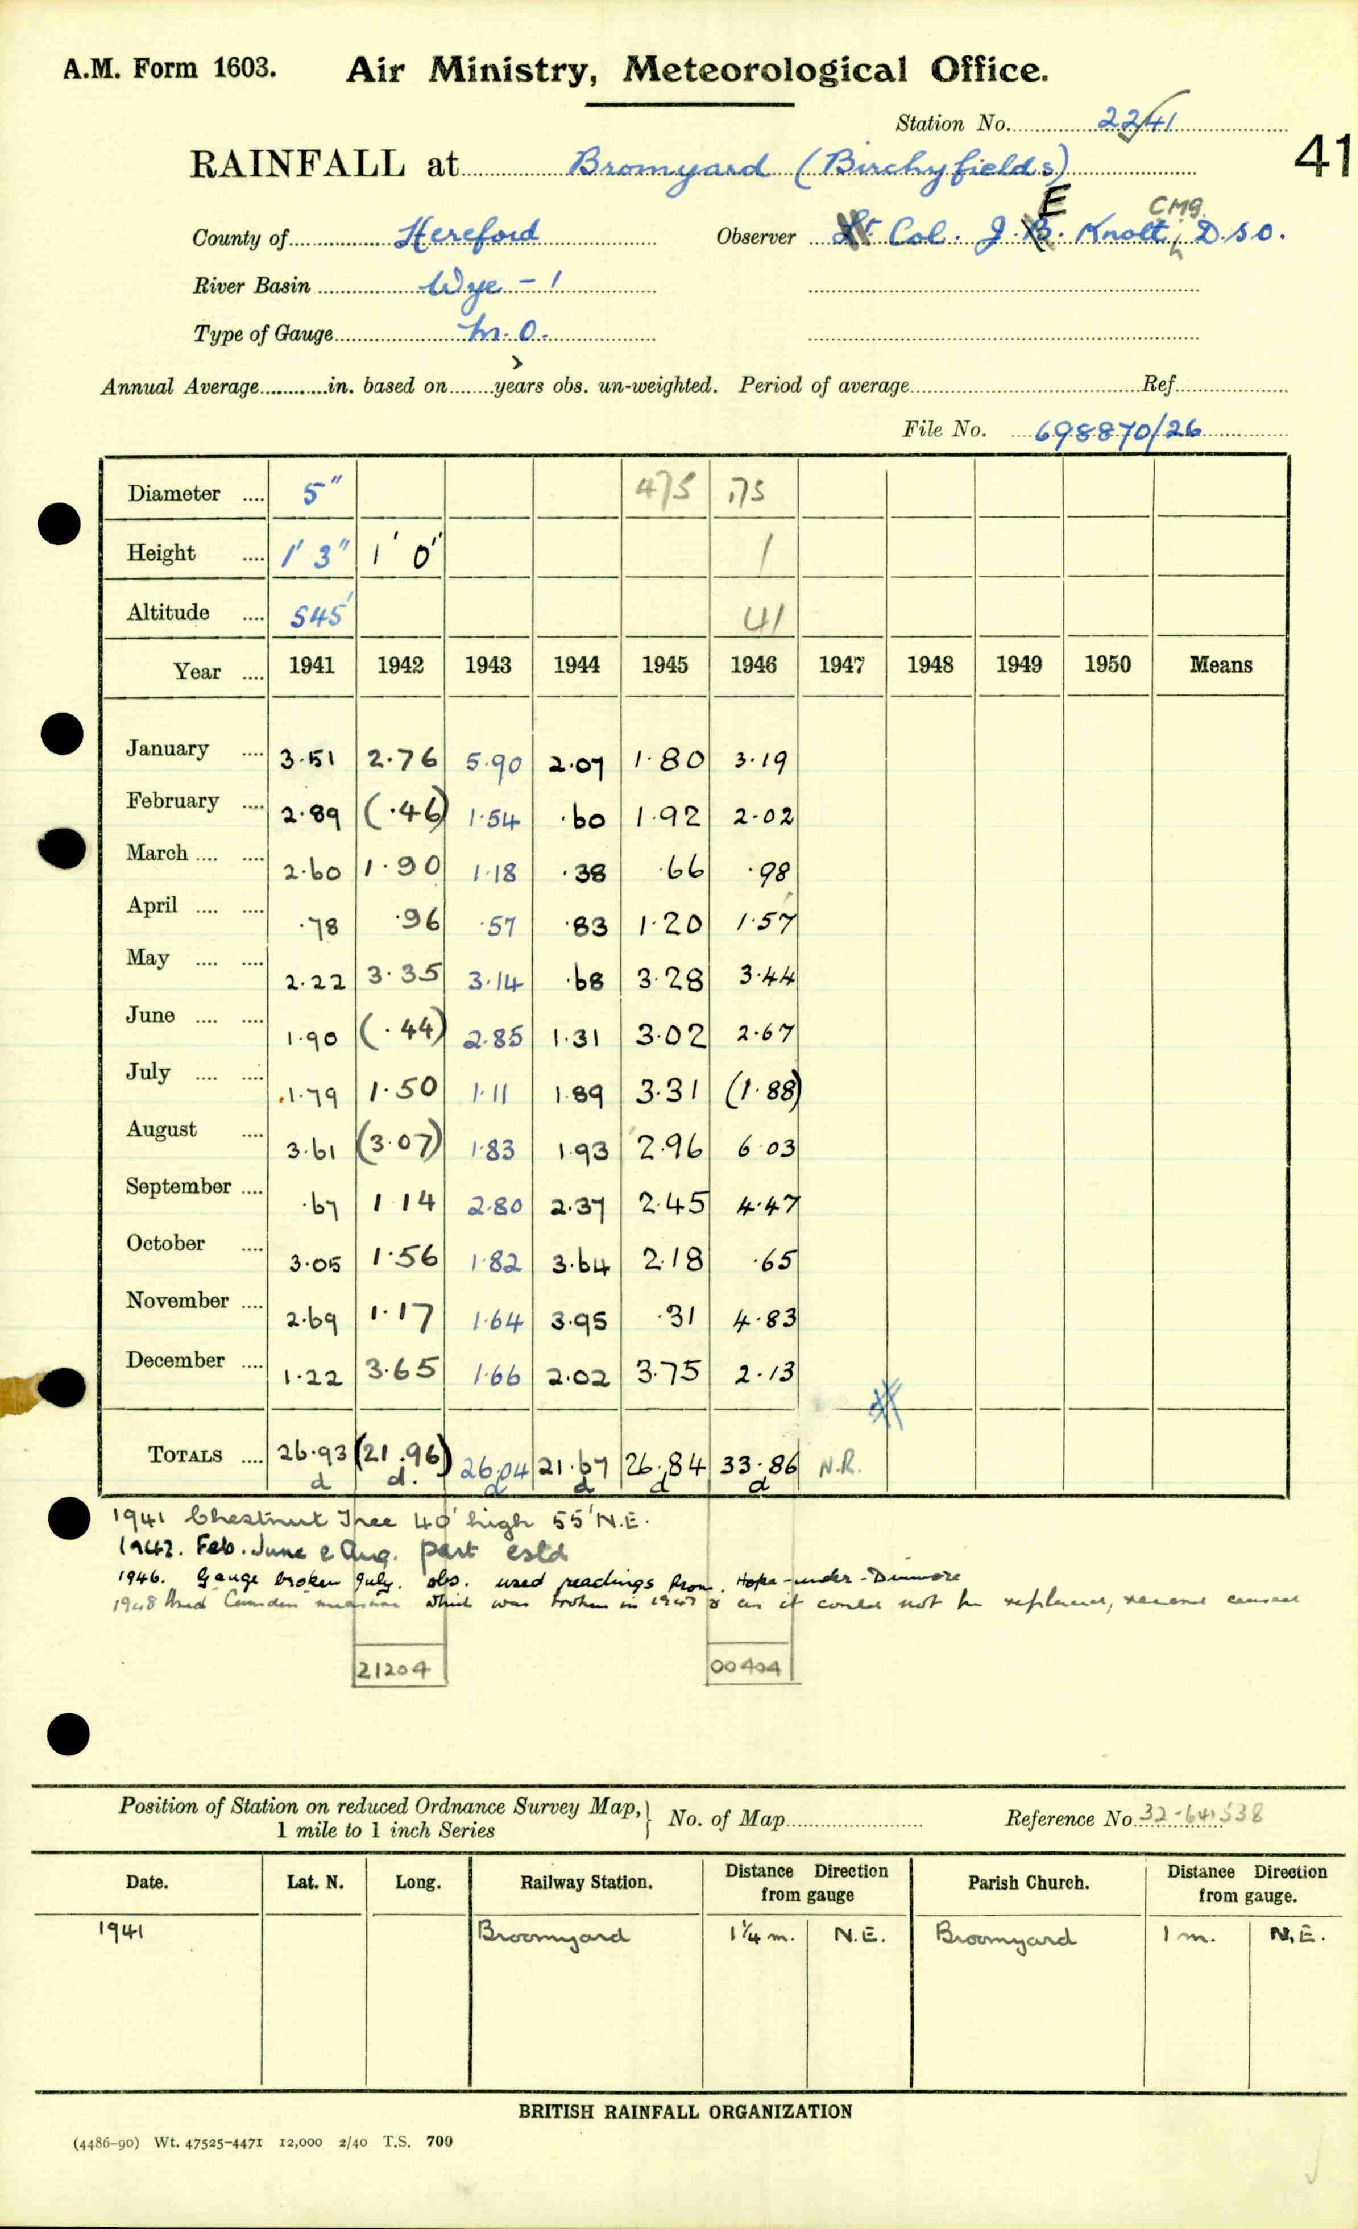 A.M. Form 1603. Air Ministry, Meteorological Office.
Station No. 2241
41
RAINFALL at Bromyard (Birchyfields)
County of Hereford Observer Lt. Col. J. B. E Knott, CMG. D.S.O.
River Basin Wye - 1
Type of Gauge M.O.
Annual Average in. based on years obs. un-weighted. Period of average Ref.
File No. 698870/26
Diameter .... 5" 475 .75
Height .... 1' 3" 1' 0" 1
Altitude .... 545' 41
Year .... 1941 1942 1943 1944 1945 1946 1947 1948 1949 1950 Means
January .... 3.51 2.76 5.90 2.07 1.80 3.19
February .... 2.89 (.46) 1.54 .60 1.92 2.02
March .... .... 2.60 1.90 1.18 .38 .66 .98
April .... .... .78 .96 .57 .83 1.20 1.57
May .... .... 2.22 3.35 3.14 .68 3.28 3.44
June .... .... 1.90 (.44) 2.85 1.31 3.02 2.67
July .... .... 1.79 1.50 1.11 1.89 3.31 (1.88)
August .... 3.61 (3.07) 1.83 1.93 2.96 6.03
September .... .67 1.14 2.80 2.37 2.45 4.47
October .... 3.05 1.56 1.82 3.64 2.18 .65
November .... 2.69 1.17 1.64 3.95 .31 4.83
December .... 1.22 3.65 1.66 2.02 3.75 2.13
TOTALS .... 26.93 (21.96) 26.04 21.67 26.84 33.86 N.R.
d d. d d d d
1941 Chestnut Tree 40' high 55' N.E.
1942. Feb. June & Aug. part estd
1946. Gauge broken July. obs. used readings from Hope-under-Dinmore
1948 Camden measure which was broken in 1947 & as it could not be replaced, record ceased
21204 00404
Position of Station on reduced Ordnance Survey Map, No. of Map Reference No 32-641538
1 mile to 1 inch Series
Date. Lat. N. Long. Railway Station. Distance Direction from gauge Parish Church. Distance Direction from gauge.
1941 Broomyard 1¼ m. N.E. Broomyard 1 m. N.E.
BRITISH RAINFALL ORGANIZATION
(4486-90) Wt. 47525-4471 12,000 2/40 T.S. 700